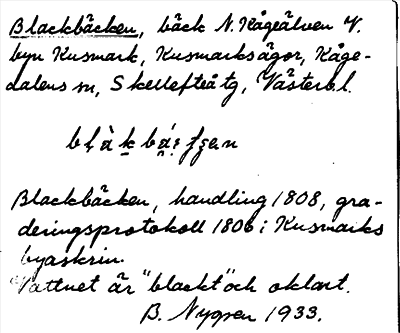 Blackbäcken, bäck N. Kågeälven V.
byn Kusmark, Kusmarksägor, Kåge-
dalens sn, Skellefteå tg, Västerb. l.
Blackbäcken, handling 1808, gra-
deringsprotokoll 1806 i Kusmarks
byaskrin.
Vattnet är "blackt" och oklart.
B. Nygren 1933.